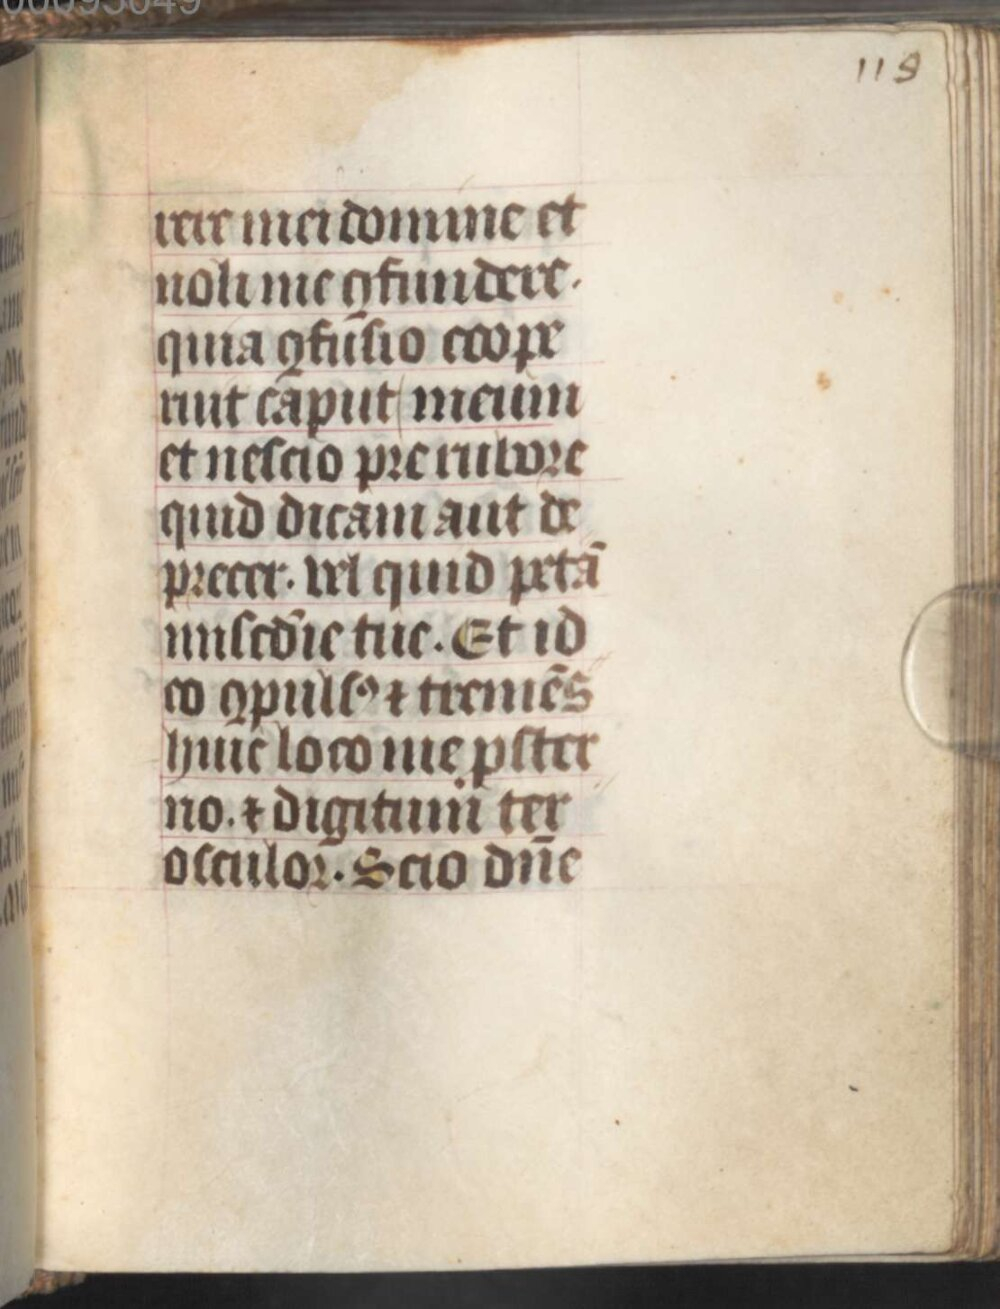 00095049
118
rere mei domine et
noli me ꝯfundere.
quia ꝯfūsio coope
ruit caput meum
et nescio pre rubore
quid dicam aut de
precer. vel quid petā
miscd̄ie tue. Et id
eo ꝯpulsꝰ ⁊ tremēs
huic loco me ꝓster
no. ⁊ digitum ter
osculor. Scio dn̄e